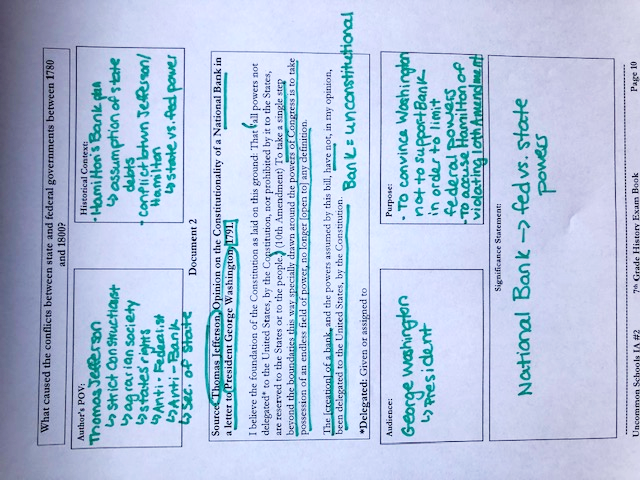 What caused the conflicts between state and federal governments between 1780
and 1800?
Author's POV:
Thomas Jefferson
↳ strict constructionist
↳ agrarian society
↳ states' rights
↳ Anti-Federalist
↳ Anti-Bank
↳ sec. of state
Historical Context:
• Hamilton's Bank plan
↳ assumption of state
debts
• conflict btwn Jefferson/
Hamilton
↳ state vs. fed power
Document 2
Source: Thomas Jefferson, Opinion on the Constitutionality of a National Bank in
a letter to President George Washington, 1791.
I believe the foundation of the Constitution as laid on this ground: That "all powers not
delegated* to the United States, by the Constitution, nor prohibited by it to the States,
are reserved to the States or to the people." (10th Amendment) To take a single step
beyond the boundaries this way specially drawn around the powers of Congress is to take
possession of an endless field of power, no longer [open to] any definition.
The [creation] of a bank, and the powers assumed by this bill, have not, in my opinion,
been delegated to the United States, by the Constitution.
Bank = unconstitutional
*Delegated: Given or assigned to
Audience:
George Washington
↳ President
Purpose:
• To convince Washington
not to support Bank
in order to limit
federal powers
• To accuse Hamilton of
violating 10th Amendment
Significance Statement:
National Bank → fed vs. state
powers
Uncommon Schools IA #2
7th Grade History Exam Book
Page 10